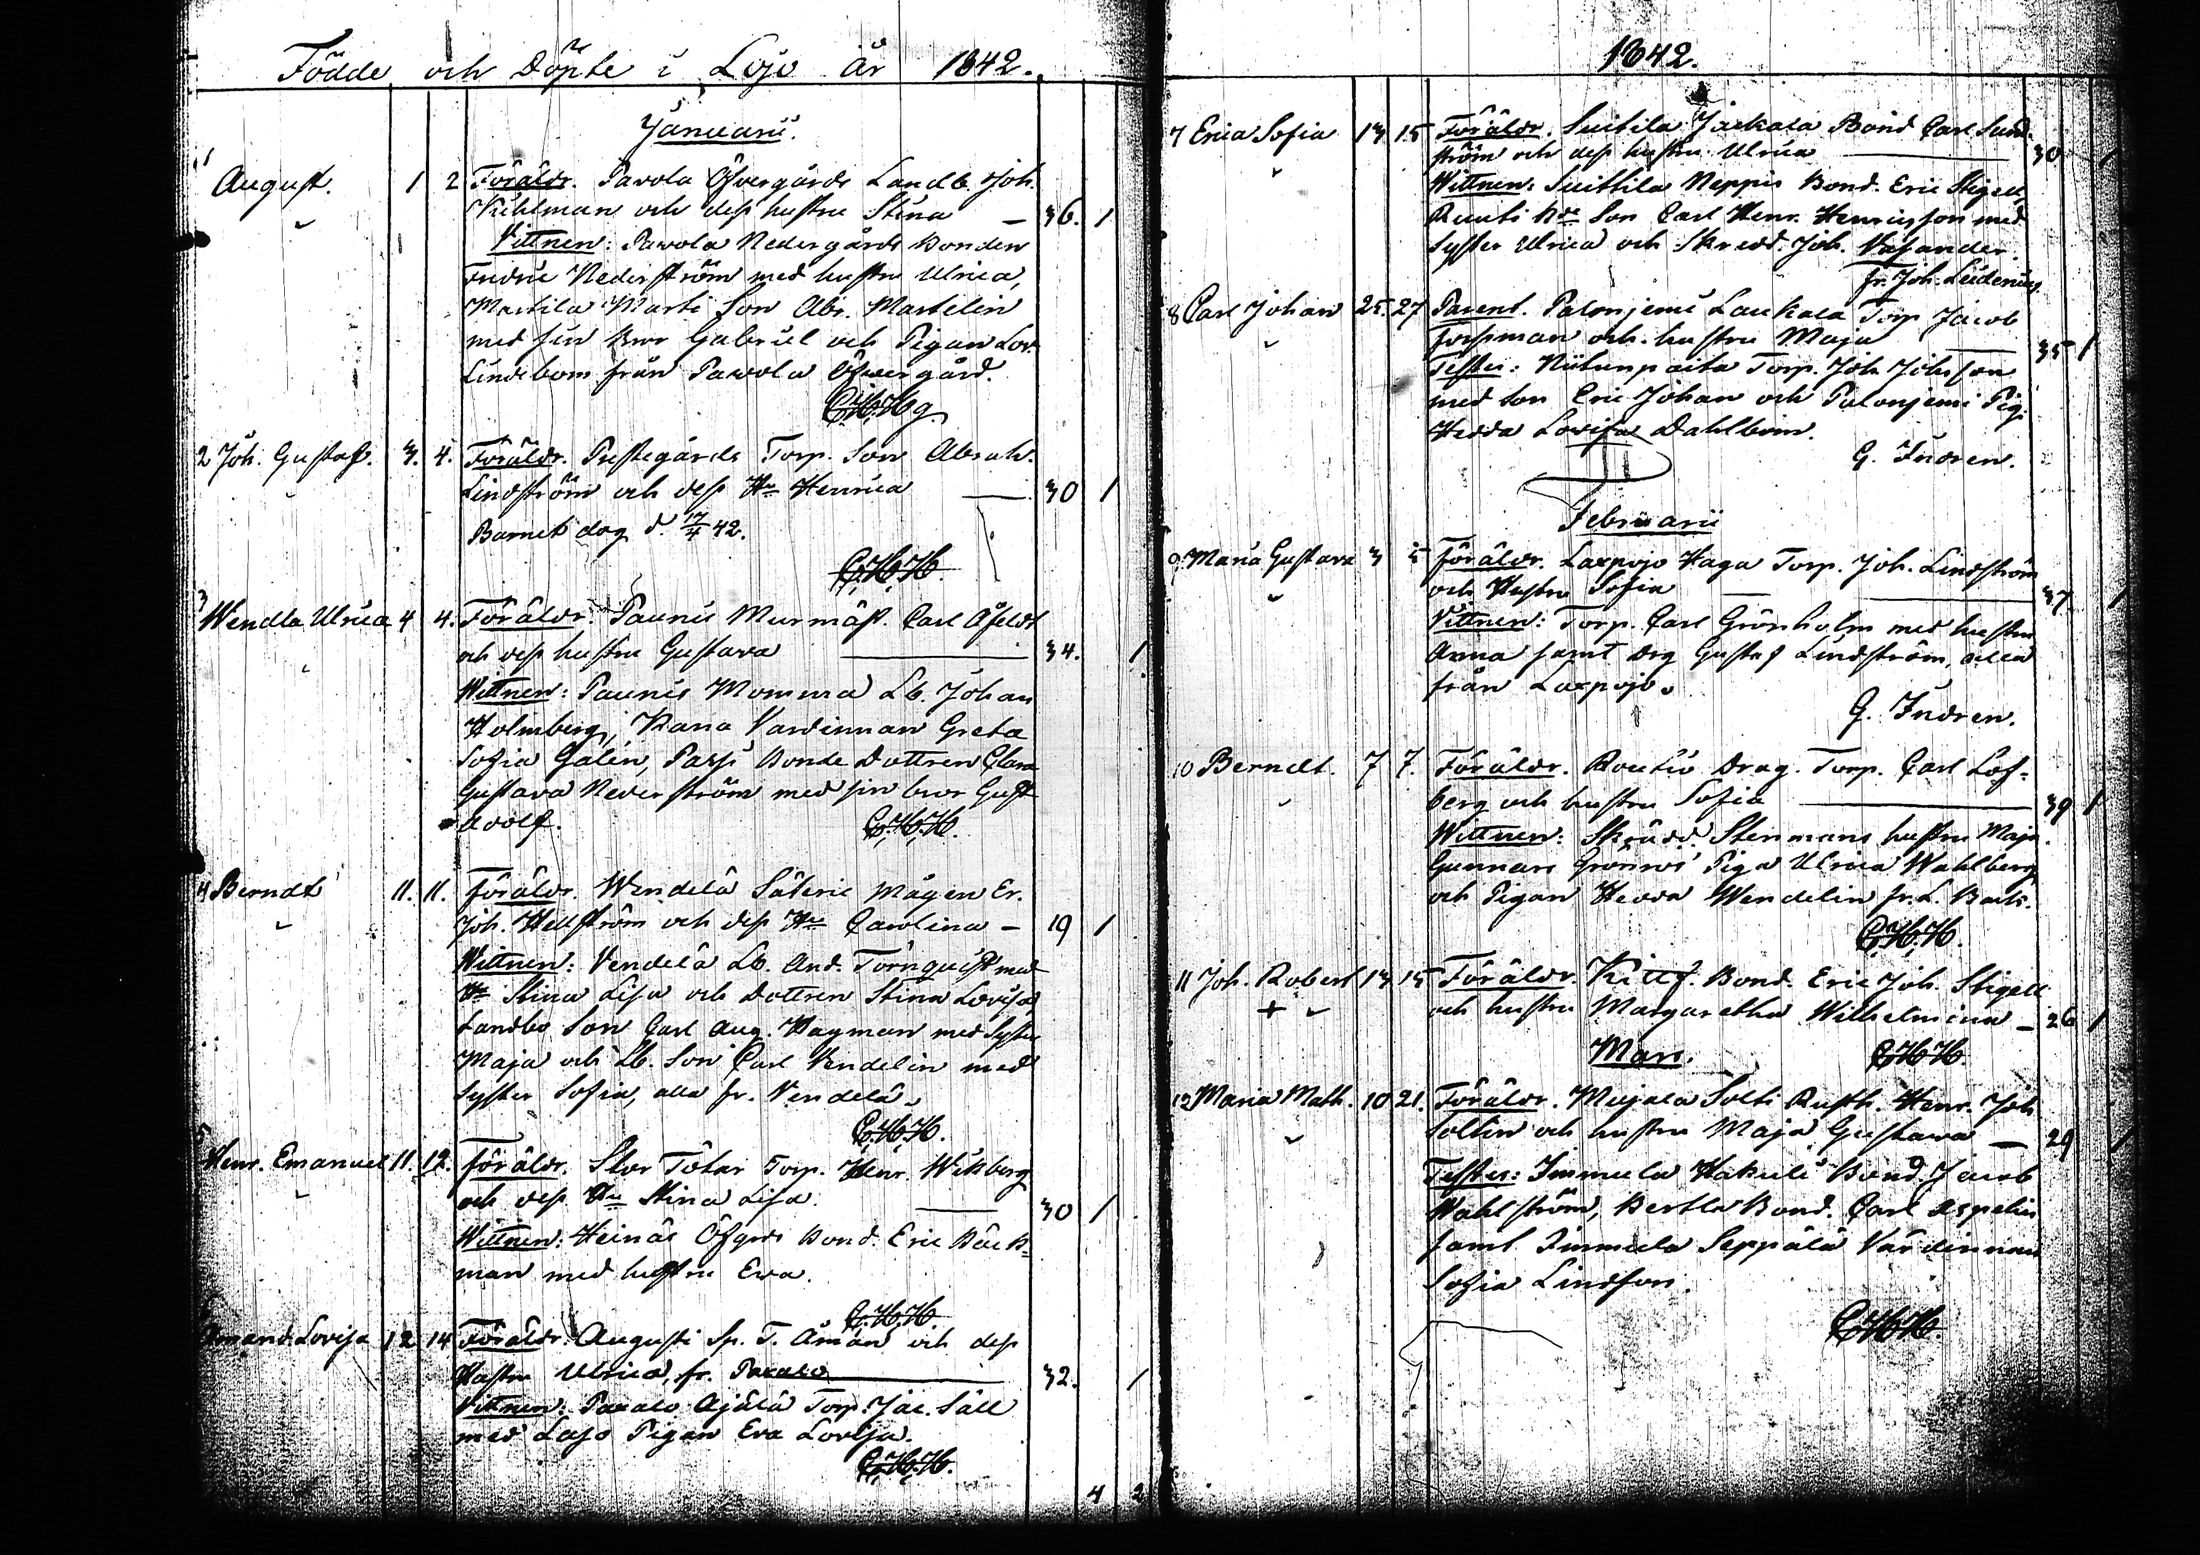 Födde och Döpte i Lojo år 1842.
Januarii.
1 August. 1 2 Föräldr. Pavola Öfvergårds Landb. Joh.
Kihlman och dess hustru Stina — 36. 1
Vittnen: Pavola Nedergårds Bonden
Fredric Nederström med hustru Ulrica,
Martila Marti Son Abr. Martelin
med sin Bror Gabriel och Pigan Lov.
Lindebom från Pavola Öfvergård.
2 Joh. Gustaf. 3. 4. Föräldr. Prestegårds Torp. Son Abrah.
Lindström och dess Hu Henrica — 30 1
Barnet dog d. 17/4 42.
C.H.H.
3 Wendla Ulrica 4 4. Föräldr. Paunis Murmäst. Carl Åfeldt
och dess hustru Gustava — 34. 1
Wittnen: Paunis Momma Lb. Johan
Holmberg, Vardinnan Greta
Sofia Galen, Bonde Dottren Clara
Gustava Nederström med sin bror Gust
Adolf. C.H.H.
4 Berndt 11. 11. Föräldr. Wendelä Säterie Mågen Er.
Joh. Hellström och dess Hu Carolina — 19 1
Wittnen: Vendelä Lb. And. Törnquist med
Hu Stina Lisa och Dottren Stina Lovisa,
Landbo Son Carl Aug. Hagman med Syster
Maja och Lb. Son Carl Vendelin med
Syster Sofia, alla fr. Vendelä.
C.H.H.
5 Henr. Emanuel 11. 12. Föräldr. Stor Tötar Torp. Henr. Wiksberg
och dess Hu Stina Lisa. — 30 1
Wittnen: Heinäs Öfgrds Bond. Eric Bäck-
man med hustru Eva.
C.H.H.
Amand. Lovisa 12 14 Föräldr. Augusti Sp. T. Åman och dess
Hustru Ulrica, fr. — 32. 1
Vittnen: Ajälä Torp. Jac. Säll
med Pigan Eva Lovisa.
C.H.H.
4 2
1842.
7 Erica Sofia 13 15 Föräldr. Suitila Jackala Bond Carl Sund-
ström och dess hustru Ulrica — 30 1
Wittnen: Suittila Neppis Bond. Eric Stigell,
Son Carl Henr. Henricsson med
Syster Ulrica och Skredd. Joh. Vasander.
fr. Joh. Leidenius
8 Carl Johan 25. 27 Parent. Palonjemi Laukala Torp Jacob
Forssman och hustru Maja — 35 1
Testes: Torp. Joh. Johsson
med son Eric Johan och Palonjemi Pig.
Hedda Lovisa Dahlbom.
G. Indren.
Februarii
9 Maria Gustava 3 5 Föräldr. Laxpojo Haga Torp. Joh. Lindström
och Hustru Sofia — 37 1
Vittnen: Torp. Carl Grönholm med hustru
Anna samt drg Gustaf Lindström, alla
från Laxpojo.
G. Indren.
10 Berndt. 7 7. Föräldr. Routio Drag. Torp. Carl Löf-
berg och hustru Sofia — 39 1
Wittnen: Skrädd. Stenmans hustru Maja.
Gunnars Piga Ulrica Wahlberg
och Pigan Hedda Wendelin fr. L. Backs.
C.H.H.
11 Joh. Robert 13 15 Föräldr. Bond. Eric Joh. Stigell
+ och hustru Margaretha Wilhelmina — 26 1
Mars. C.H.H.
12 Maria Math. 10 21. Föräldr. Muijala Solti Rusth. Henr. Joh
Soltin och hustru Maja Gustava — 29 1
Testes: Immula Hakuli Bond. Jacob
Wahlström, Bertla Bond. Carl Aspelin
samt Immula Seppälä Värdinnan
Sofia Lindfon.
C.H.H.